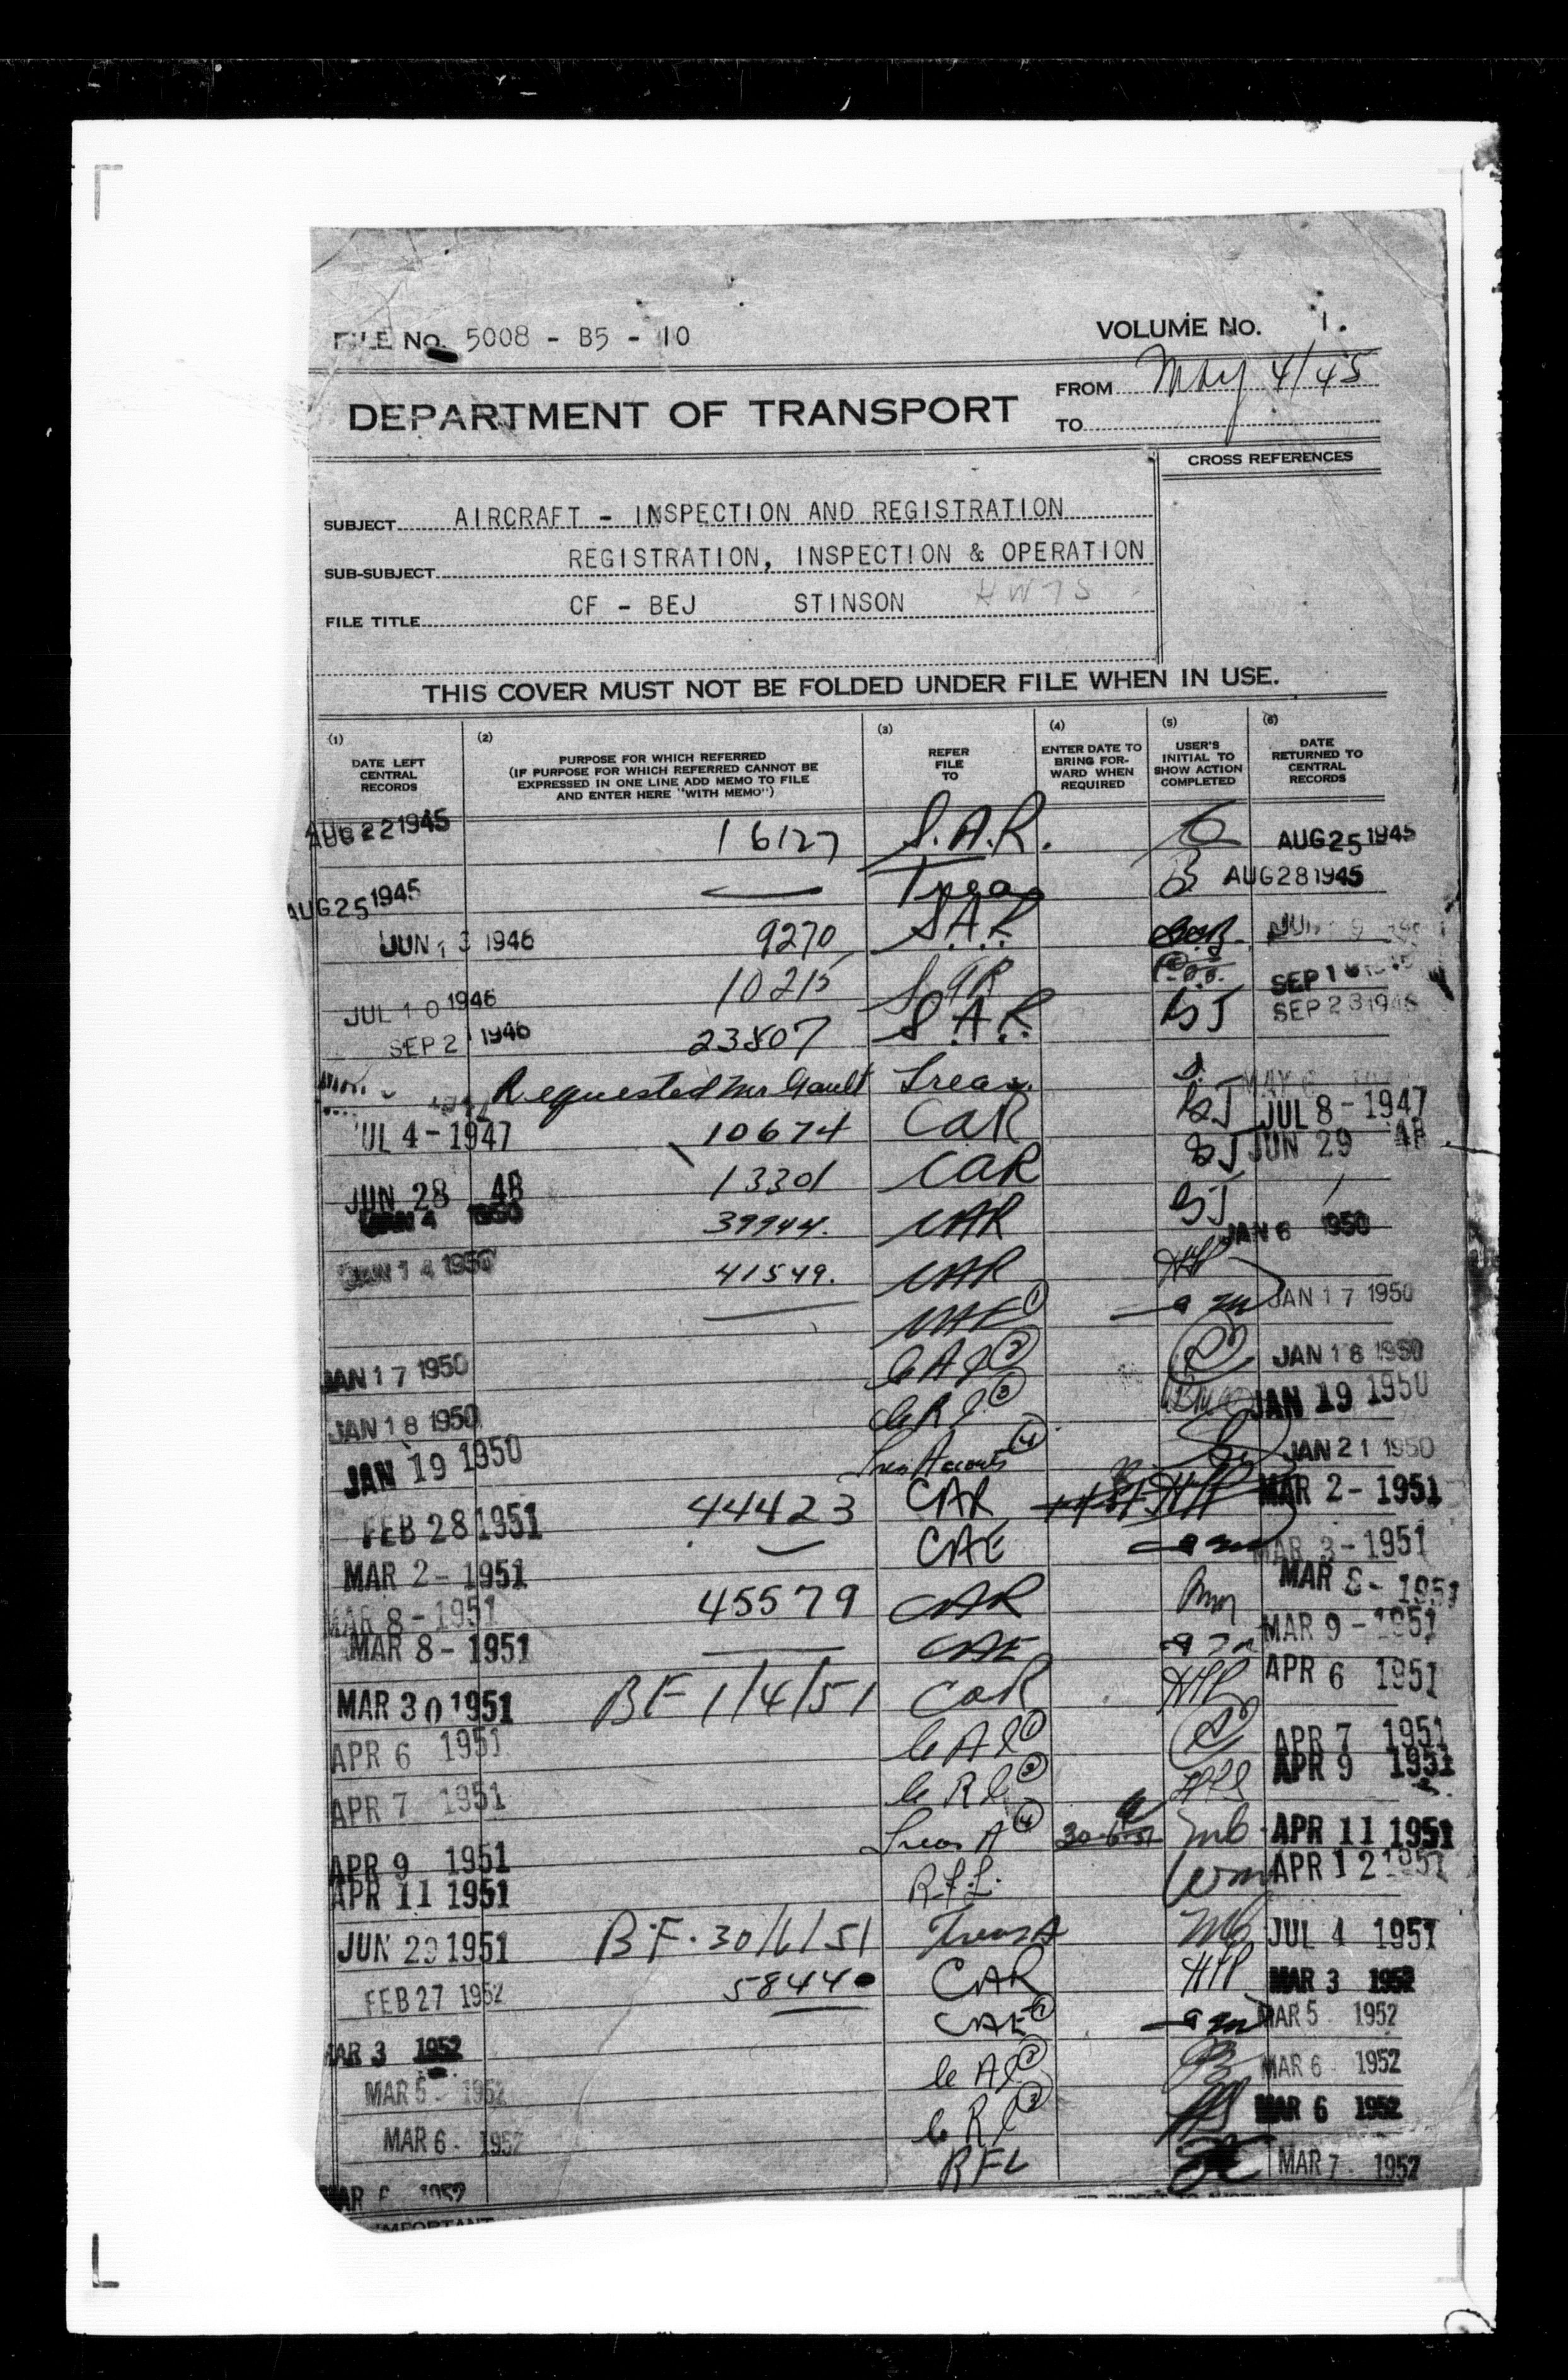 FILE NO. 5008 - B5 - 10
VOLUME NO. 1.
FROM May 4/45
DEPARTMENT OF TRANSPORT
TO
CROSS REFERENCES
SUBJECT AIRCRAFT - INSPECTION AND REGISTRATION
SUB-SUBJECT REGISTRATION, INSPECTION & OPERATION
FILE TITLE CF - BEJ STINSON HW75
THIS COVER MUST NOT BE FOLDED UNDER FILE WHEN IN USE.
(1) DATE LEFT CENTRAL RECORDS
(2) PURPOSE FOR WHICH REFERRED (IF PURPOSE FOR WHICH REFERRED CANNOT BE EXPRESSED IN ONE LINE ADD MEMO TO FILE AND ENTER HERE "WITH MEMO")
(3) REFER FILE TO
(4) ENTER DATE TO BRING FORWARD WHEN REQUIRED
(5) USER'S INITIAL TO SHOW ACTION COMPLETED
(6) DATE RETURNED TO CENTRAL RECORDS
AUG 22 1945 16127 S.A.R. AUG 25 1945
AUG 25 1945 Treas B AUG 28 1945
JUN 13 1946 9270 S.A.R.
JUL 10 1946 10215 SAR SEP 1
SEP 21 1946 23807 S.A.R. BJ SEP 23 1946
Requested Mr Gault Treas. MAY 6
JUL 4 - 1947 10674 CAR BJ JUL 8 - 1947
JUN 28 48 13301 CAR BJ JUN 29 48
JAN 4 1950 39944. CAR BJ JAN 6 1950
JAN 14 1950 41549. CAR HP
CAE ① am JAN 17 1950
JAN 17 1950 CAI ② JAN 18 1950
JAN 18 1950 CRI ③ JAN 19 1950
JAN 19 1950 Treas Accounts ④ JAN 21 1950
FEB 28 1951 44423 CAR HP MAR 2 - 1951
MAR 2 - 1951 CAE am MAR 3 - 1951
MAR 8 - 1951 45579 CAR MAR 8 - 1951
MAR 8 - 1951 CAE am MAR 9 - 1951
MAR 30 1951 BF 1/4/51 CAR HP APR 6 1951
APR 6 1951 CAI ① APR 7 1951
APR 7 1951 CRI ② APR 9 1951
APR 9 1951 Treas A ④ 30-6-51 APR 11 1951
APR 11 1951 R.F.L. APR 12 1951
JUN 29 1951 B.F. 30/6/51 Treas A JUL 4 1951
FEB 27 1952 58440 CAR HP MAR 3 1952
MAR 3 1952 CAE ① am MAR 5 1952
MAR 5 1952 CAI ② MAR 6 1952
MAR 6 1952 CRI ③ MAR 6 1952
MAR 6 1952 RFL MAR 7 1952
IMPORTANT